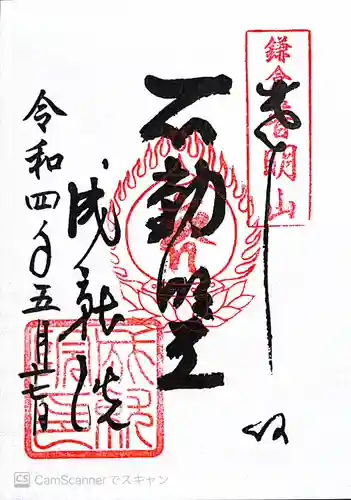 鎌倉青明山
奉拝
不動明王
成就院
令和四年五月廿一日
CS CamScanner でスキャン